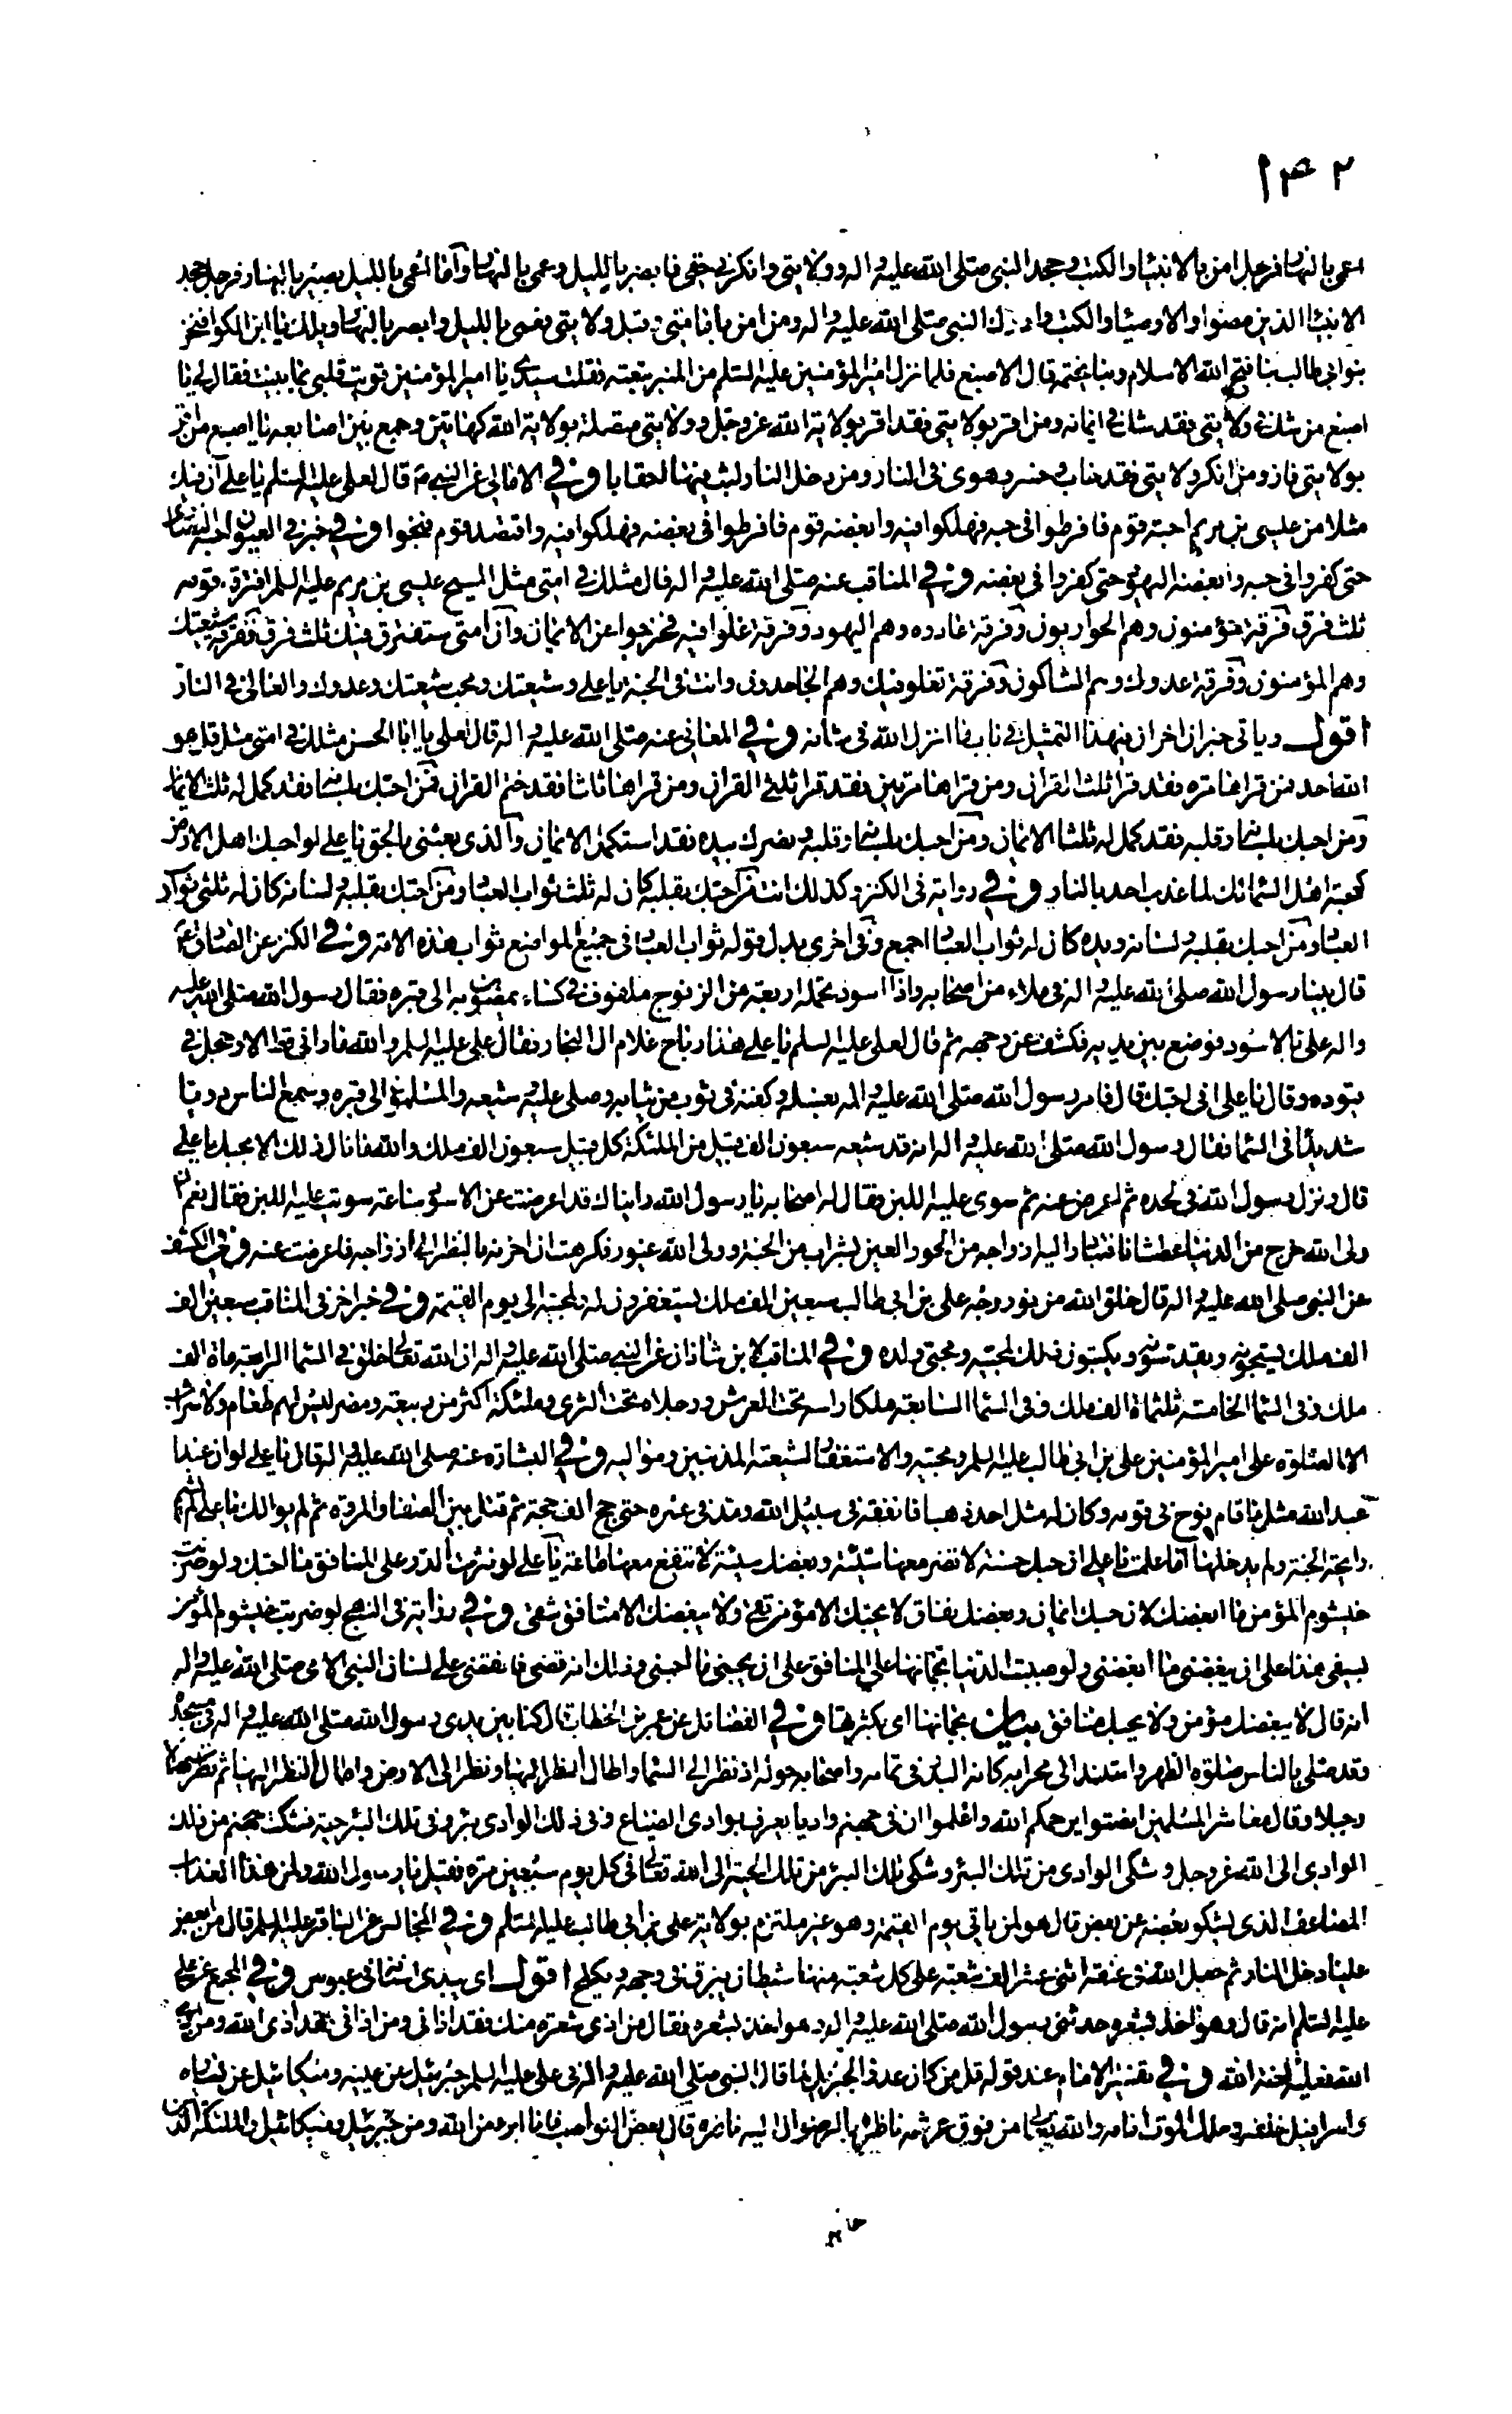 ١٤٢
اعمى بالنهار فرجل امن بالانبياء والكتب وجحد النبي صلى الله عليه واله وولايتي وانكرني حقي فابصر بالليل وعمى بالنهار وآما اعمى بالليل بصير بالنهار فرجل جحد
الانبياء الذين مضوا والاوصياء والكتب وادرك النبي صلى الله عليه واله ومن امن بامامتي وقبل ولايتي فعمى بالليل وابصر بالنهار ويلك يا ابن الكوا فنحن
بنو ابي طالب بنا فتح الله الاسلام وبنا يختمه قال الاصبغ فلما نزل امير المؤمنين عليه السلم من المنبر تبعته فقلت سيدي يا امير المؤمنين قويت قلبي بما بينت فقال لي يا
اصبغ من شك في ولايتي فقد شك في ايمانه ومن اقر بولايتي فقد اقر بولاية الله عز وجل وولايتي متصلة بولاية الله كهاتين وجمع بين اصابعه يا اصبغ من اقر
بولايتي فاز ومن انكر ولايتي فقد خاب وخسر وهوى في النار ومن دخل النار لبث فيها احقابا وفي الامالي عن النبي ص قال لعلي عليه السلم يا علي ان فيك
مثلا من عيسى بن مريم احبه قوم فافرطوا في حبه فهلكوا فيه وابغضه قوم فافرطوا في بغضه فهلكوا فيه واقتصد قوم فنجوا وفي خبر في العيون احبه النصارى
حتى كفروا في حبه وابغضه اليهود حتى كفروا في بغضه وفي المناقب عنه صلى الله عليه واله قال مثلك في امتي مثل المسيح عيسى بن مريم عليه السلم افترق قومه
ثلث فرق فرقة مؤمنون وهم الحواريون وفرقة عادوه وهم اليهود وفرقة غلوا فيه فخرجوا عن الايمان وآن امتي ستفترق فيك ثلث فرق ففرقة شيعتك
وهم المؤمنون وفرقة عدوك وهم الشاكون وفرقة تغلو فيك وهم الجاحدون وانت في الجنة يا علي وشيعتك ومحب شيعتك وعدوك والغالي في النار
اقول وياتي خبران اخران بهذا التمثيل في باب ما انزل الله في شانه وفي المعاني عنه صلى الله عليه واله قال لعلي يا ابا الحسن مثلك في امتي مثل قل هو
الله احد فمن قراها مرة فقد قرا ثلث القران ومن قراها مرتين فقد قرا ثلثي القران ومن قراها ثلثا فقد ختم القران فمن احبك بلسانه فقد كمل له ثلث الايمان
ومن احبك بلسانه وقلبه فقد كمل له ثلثا الايمان ومن احبك بلسانه وقلبه ونصرك بيده فقد استكمل الايمان وآلذي بعثني بالحق يا علي لو احبك اهل الارض
كمحبة اهل السماء لك لما عذب احد بالنار وفي رواية في الكنز وكذلك انت من احبك بقلبه كان له ثلث ثواب العباد ومن احبك بقلبه ولسانه كان له ثلثي ثواب
العباد ومن احبك بقلبه ولسانه ويده كان له ثواب العباد اجمع وفي اخرى بدل قوله ثواب العباد في جميع المواضع ثواب هذه الامة وفي الكنز عن الصادق ع
قال بينا رسول الله صلى الله عليه واله في ملاء من اصحابه واذا اسود تحمله اربعة من الزنوج ملفوف في كساء يمضون به الى قبره فقال رسول الله صلى الله عليه
واله علي بالاسود فوضع بين يديه فكشف عن وجهه ثم قال لعلي عليه السلم يا علي هذا رباح غلام ال النجار فقال علي عليه السلم والله ما راني قط الا وحجل في
قيوده وقال يا علي اني احبك قال فامر رسول الله صلى الله عليه واله بغسله وكفنه في ثوب من ثيابه وصلى عليه وشيعه والمسلمون الى قبره وسمع الناس دويا
شديدا في السماء فقال رسول الله صلى الله عليه واله انه قد شيعه سبعون الف قبيل من الملئكة كل قبيل سبعون الف ملك والله ما نال ذلك الا بحبك يا علي
قال ونزل رسول الله في لحده ثم اعرض عنه ثم سوى عليه اللبن فقال له اصحابه يا رسول الله رايناك قد اعرضت عن الاسود ساعة ثم سويت عليه اللبن فقال نعم ان
ولي الله خرج من الدنيا عطشانا فتبادر اليه ازواجه من الحور العين بشراب من الجنة وولي الله غيور فكرهت ان احزنه بالنظر الى ازواجه فاعرضت عنه وفي الكشف
عن النبي صلى الله عليه واله قال خلق الله من نور وجه علي بن ابي طالب سبعين الف ملك يستغفرون له ولمحبيه الى يوم القيمة وفي خبر اخر في المناقب سبعين الف
الف ملك يسبحونه ويقدسونه ويكتبون ذلك لمحبيه ومحبي ولده وفي المناقب لابن شاذان عن النبي صلى الله عليه واله ان الله تعالى خلق في السماء الرابعة مائة الف
ملك وفي السماء الخامسة ثلثمائة الف ملك وفي السماء السابعة ملكا راسه تحت العرش ورجلاه تحت الثرى وملئكة اكثر من ربيعة ومضر ليس لهم طعام ولا شراب
الا الصلوة على امير المؤمنين علي بن ابي طالب عليه السلم ومحبيه والاستغفار لشيعته المذنبين ومواليه وفي البشارة عنه صلى الله عليه واله قال يا علي لو ان عبدا
عبد الله مثل ما قام نوح في قومه وكان له مثل احد ذهبا فانفقه في سبيل الله ومد في عمره حتى حج الف حجة ثم قتل بين الصفا والمروة ثم لم يوالك يا علي لم يشم
رايحة الجنة ولم يدخلها اما علمت يا علي ان حبك حسنة لا تضر معها سيئة وبغضك سيئة لا تنفع معها طاعة يا علي لو نثرت الدر على المنافق ما احبك ولو ضربت
خيشوم المؤمن ما ابغضك لان حبك ايمان وبغضك نفاق لا يحبك الا مؤمن تقي ولا يبغضك الا منافق شقي وفي رواية في النهج لو ضربت خيشوم المؤمن
بسيفي هذا على ان يبغضني ما ابغضني ولو صببت الدنيا بجماتها على المنافق على ان يحبني ما احبني وذلك انه قضي فانقضى على لسان النبي الامي صلى الله عليه واله
انه قال لا يبغضك مؤمن ولا يحبك منافق بيان بجماتها اي بكثرتها وفي الفضائل عن عمر بن الخطاب قال كنا بين يدي رسول الله صلى الله عليه واله في مسجده
وقد صلى بالناس صلوة الظهر واستند الى محرابه كانه البدر في تمامه واصحابه حوله اذ نظر الى السماء واطال النظر اليها ونظر الى الارض واطال النظر اليها ثم نظر سهلا
وجبلا وقال معاشر المسلمين انصتوا يرحمكم الله واعلموا ان في جهنم واديا يعرف بوادي الضياع وفي ذلك الوادي بئر وفي تلك البئر حية فشكت جهنم من ذلك
الوادي الى الله عز وجل وشكى الوادي من تلك البئر وشكى تلك البئر من تلك الحية الى الله تعالى في كل يوم سبعين مرة فقيل يا رسول الله ولمن هذا العذاب
المضاعف الذي يشكو بعضه عن بعض قال هو لمن ياتي يوم القيمة وهو غير ملتزم بولاية علي بن ابي طالب عليه السلم وفي المجالس عن الباقر عليه السلم قال من ابغض
عليا دخل النار ثم جعل الله في عنقه اثني عشر الف شعبة على كل شعبة منها شيطان يبزق في وجهه ويكلح اقول اي يبدي اسنانه في عبوس وفي المجمع عن علي
عليه السلم انه قال وهو اخذ بشعره حدثني رسول الله صلى الله عليه واله وهو اخذ بشعره فقال من اذى شعرة منك فقد اذاني ومن اذاني فقد اذى الله ومن اذى
الله فعليه لعنة الله وفي تفسير الامام عند قوله قل من كان عدوا لجبريل لما قال النبي صلى الله عليه واله في علي عليه السلم جبرئيل عن يمينه وميكائيل عن يساره
واسرافيل خلفه وملك الموت امامه والله تعالى من فوق عرشه ناظر بالرضوان اليه ناصره قال بعض النواصب فانا ابرء من الله ومن جبرئيل وميكائيل والملئكة الذين